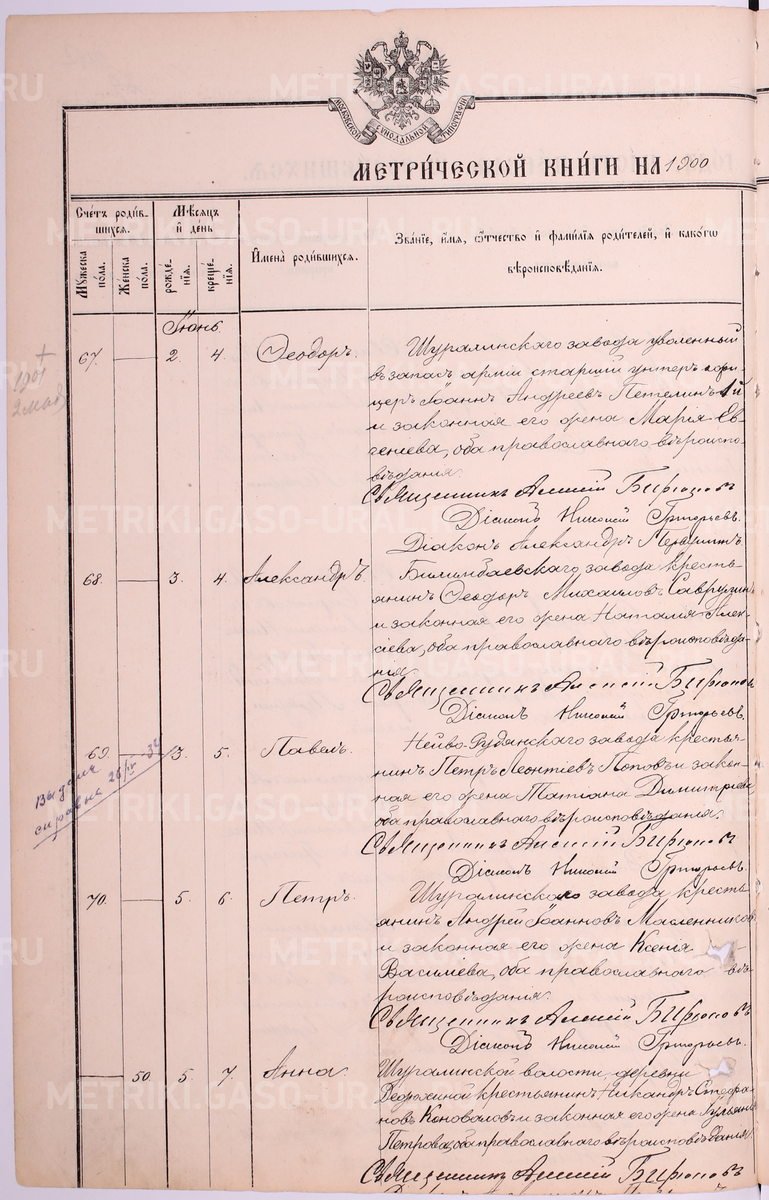 МОСКОВСКОЙ СѴНОДАЛЬНОЙ ТИПОГРАФІИ
МЕТРИ́ЧЕСКОЙ КНИ́ГИ НА 1900
Счетъ роди́в-
шихся.
Мѣсяцъ
и҆ де́нь
И҆мена̀ роди́вшихся.
Зва́нїе, и҆́мѧ, ѻ҆́тчество и҆ фами́лїѧ роди́телей, и҆ како́гѡ
вѣроисповѣ́данїѧ.
Мꙋ́жеска
по́ла.
Же́нска
по́ла.
рожде́-
нїѧ.
креще́-
нїѧ.
Іюнь.
67. 2. 4. Ѳеодоръ.
Шуралинскаго завода уволенный
въ запасъ арміи старшій унтеръ-офи-
церъ Іоаннъ Андреевъ Петелинъ 1й
и законная его жена Марія Ев-
геніева, оба православнаго вѣроиспо-
вѣданія.
Священникъ Алексій Бирюковъ
Діаконъ Николай Григорьевъ.
Діаконъ Александръ
1901
2 мая
68. 3. 4. Александръ.
Билимбаевскаго завода кресть-
янинъ Ѳеодоръ Михаиловъ Саврулинъ
и законная его жена Наталія Алек-
сіева, оба православнаго вѣроисповѣда-
нія.
Священникъ Алексій Бирюковъ
Діаконъ Николай Григорьевъ.
69. 3. 5. Павелъ.
Нейво-Рудянскаго завода крестья-
нинъ Петръ Леонтіевъ Поповъ и закон-
ная его жена Татіана Димитріева
оба православнаго вѣроисповѣданія.
Священникъ Алексій Бирюковъ
Діаконъ Николай Григорьевъ.
Выдана
справка 26/IV-32
70. 5. 6. Петръ.
Шуралинскаго завода кресть-
янинъ Андрей Іоанновъ Масленниковъ
и законная его жена Ксенія
Василіева, оба православнаго вѣ-
роисповѣданія.
Священникъ Алексій Бирюковъ
Діаконъ Николай Григорьевъ.
50. 5. 7. Анна.
Шуралинской волости, деревни
крестьянинъ Никандръ Стефа-
новъ Коноваловъ и законная его жена Іуліанія
Петрова, оба православнаго вѣроисповѣданія.
Священникъ Алексій Бирюковъ
METRIKI.GASO-URAL.RU